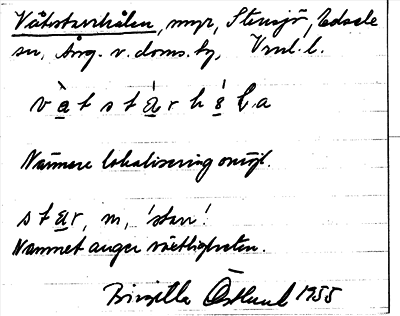 Våtstarrhålan, myr, Stensjö, Edsele
sn, Ång. v. doms. hg, Vnl. l.
våtstarhåla
Närmare lokalisering omöjl.
star, m, 'starr'.
Namnet anger växtligheten.
Birgitta Östlund 1955